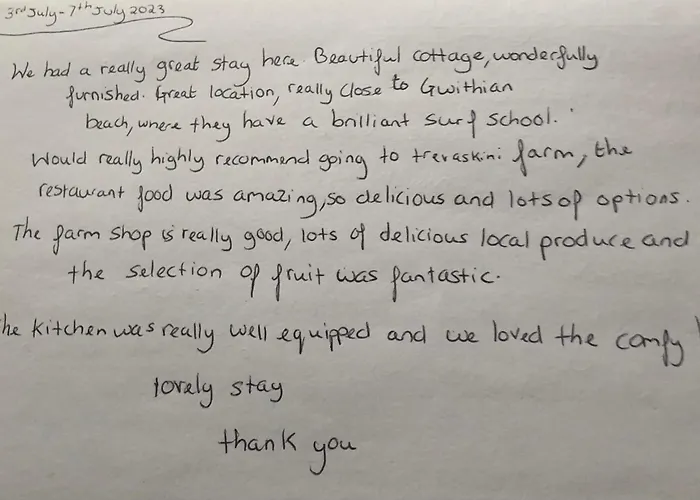 3rd July - 7th July 2023
We had a really great stay here. Beautiful cottage, wonderfully
furnished. Great location, really close to Gwithian
beach, where they have a brilliant surf school.
Would really highly recommend going to trevaskini farm, the
restaurant food was amazing, so delicious and lots of options.
The farm shop is really good, lots of delicious local produce and
the selection of fruit was fantastic.
he kitchen was really well equipped and we loved the comfy
lovely stay
thank you